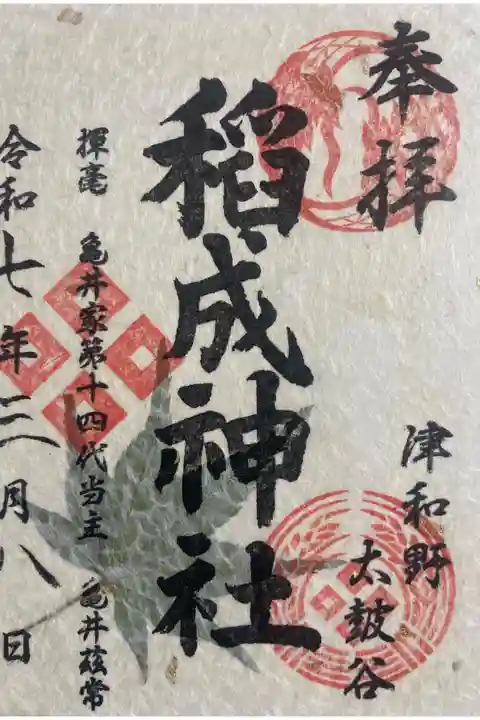 奉拝
津和野
太皷谷
稲成神社
揮毫 亀井家第十四代当主 亀井茲常
令和七年三月八日